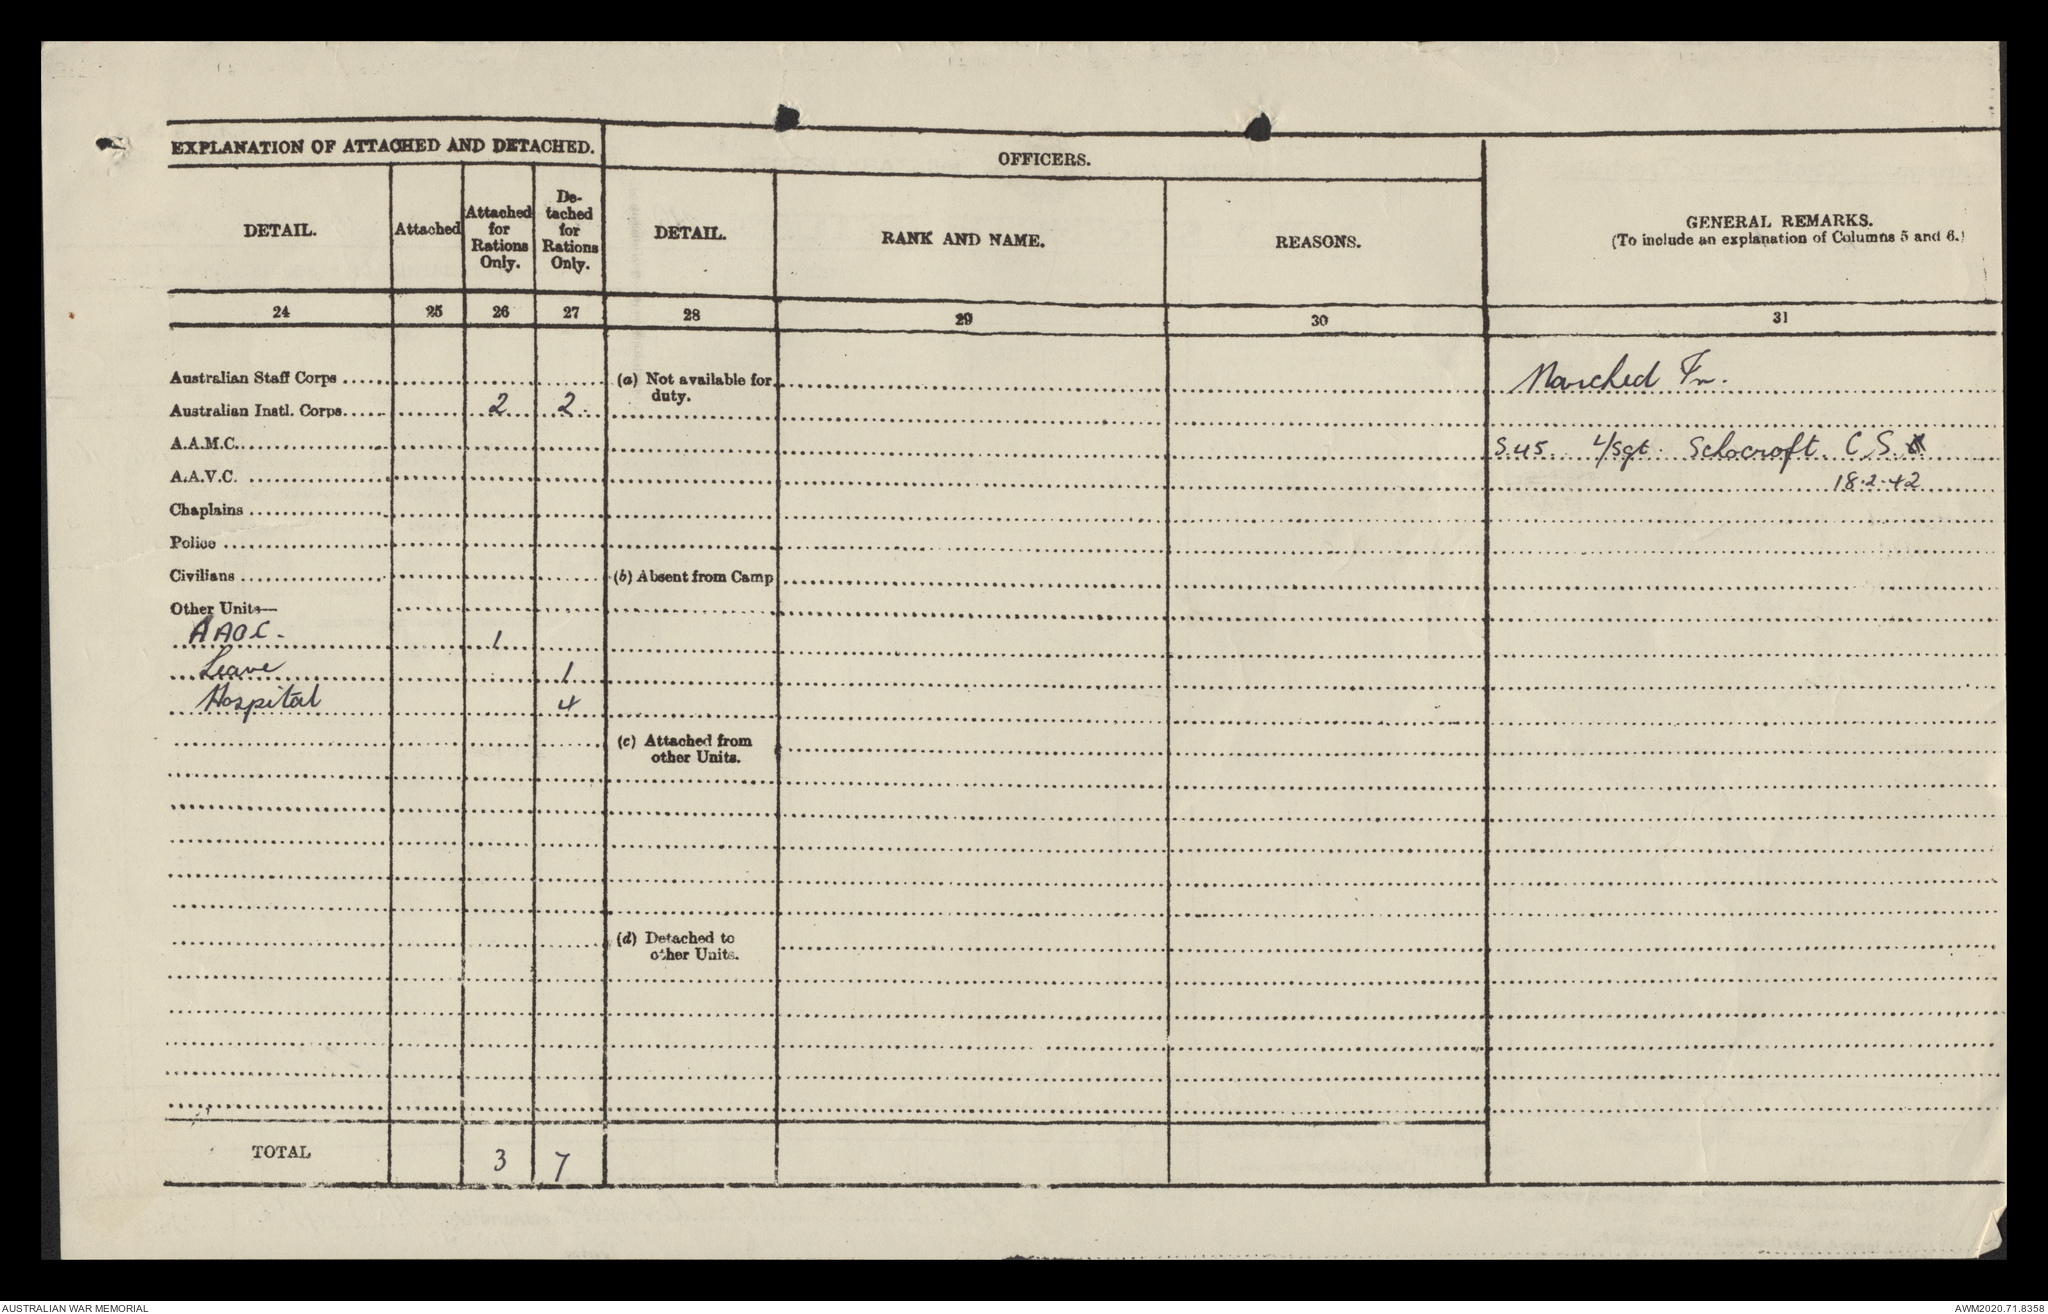 EXPLANATION OF ATTACHED AND DETACHED.
OFFICERS.
DETAIL.
Attached
Attached for Rations Only.
De-tached for Rations Only.
DETAIL.
RANK AND NAME.
REASONS.
GENERAL REMARKS.
(To include an explanation of Columns 5 and 6.)
24 25 26 27 28 29 30 31
Australian Staff Corps
(a) Not available for duty.
Marched In.
Australian Instl. Corps 2 2
A.A.M.C.
S45 L/Sgt. Schocroft. C.S.
A.A.V.C.
18.2.42
Chaplains
Police
Civilians
(b) Absent from Camp
Other Units—
AAOC. 1
Leave 1
Hospital 4
(c) Attached from other Units.
(d) Detached to other Units.
TOTAL 3 7
AUSTRALIAN WAR MEMORIAL
AWM2020.71.8358